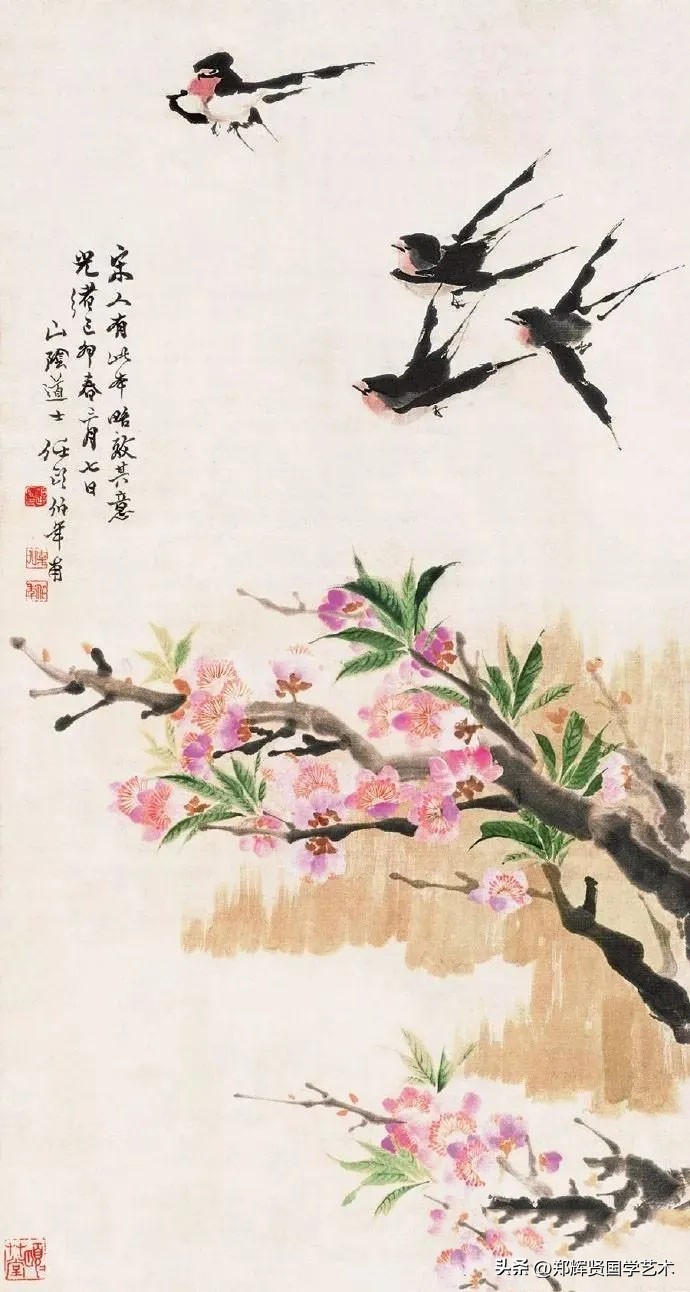 宋人有此本略效其意
光绪己卯春三月七日
山陰道士任頤伯年甫
頤頤草堂
头条 @郑辉贤国学艺术